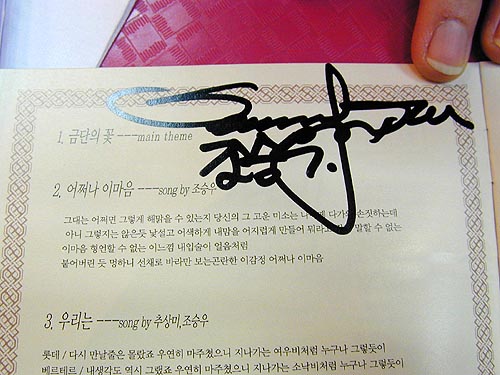 1. 금단의 꽃 ---main theme
2. 어쩌나 이마음 ---song by 조승우
그대는 어쩌면 그렇게 해맑을 수 있는지 당신의 그 고운 미소는 다가와 손짓하는데
아니 그렇지는 않은듯 낯설고 어색하게 내맘을 어지럽게 만들어 뭐라 말할 수 없는
이마음 형언할 수 없는 이느낌 내입술이 얼음처럼
붙어버린 듯 멍하니 선채로 바라만 보는곤란한 이감정 어쩌나 이마음
3. 우리는 ---song by 추상미,조승우
롯데 / 다시 만날줄은 몰랐죠 우연히 마주쳤으니 지나가는 여우비처럼 누구나 그렇듯이
베르테르 / 내생각도 역시 그랬죠 우연히 마주쳤으니 지나가는 소낙비처럼 누구나 그렇듯이